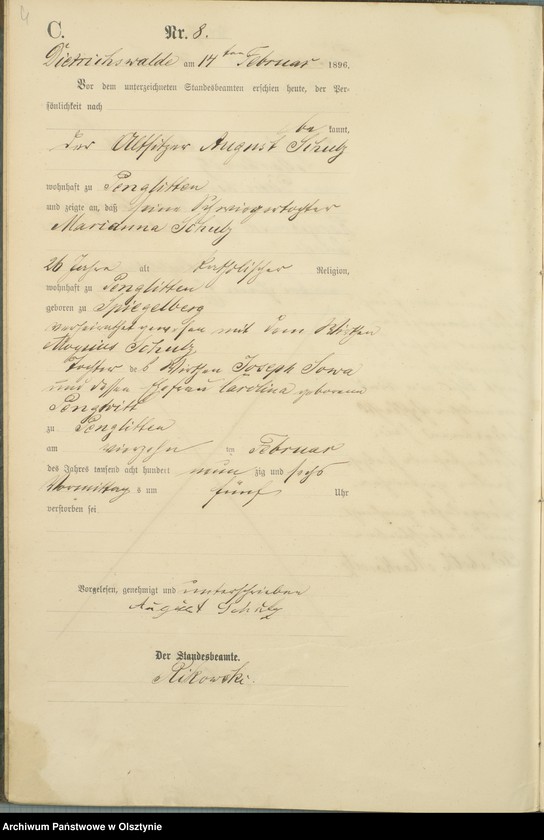 C. Nr. 8.
Dietrichswalde am 14ten Februar 1896.
Vor dem unterzeichneten Standesbeamten erschien heute, der Per-
sönlichkeit nach
be kannt,
der Altsitzer August Schulz
wohnhaft zu Penglitten
und zeigte an, daß seine Schwiegertochter
Marianna Schulz
26 Jahre alt katholischer Religion,
wohnhaft zu Penglitten
geboren zu Spiegelberg
verheirathet gewesen mit dem Wirthen
Aloysius Schulz
Tochter des Wirthen Joseph Sowa
und dessen Ehefrau Carolina geborene
zu Penglitten
am vierzehn ten Februar
des Jahres tausend acht hundert neun zig und sechs
Vormittag s um fünf Uhr
verstorben sei
Vorgelesen, genehmigt und unterschrieben
August Schulz
Der Standesbeamte.
Rikowski.
Archiwum Państwowe w Olsztynie